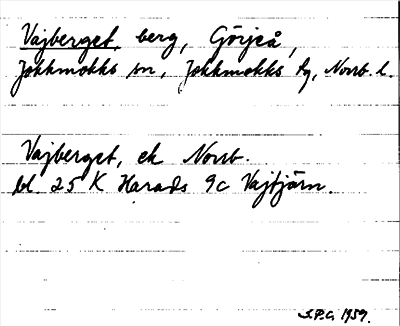 Vajberget, berg, Görjeå,
Jokkmokks sn, Jokkmokks tg, Norrb. l.
Vajberget, ek Norrb.
bl 25 K Harads 9c Vajtjärn.
S.P.G. 1959.